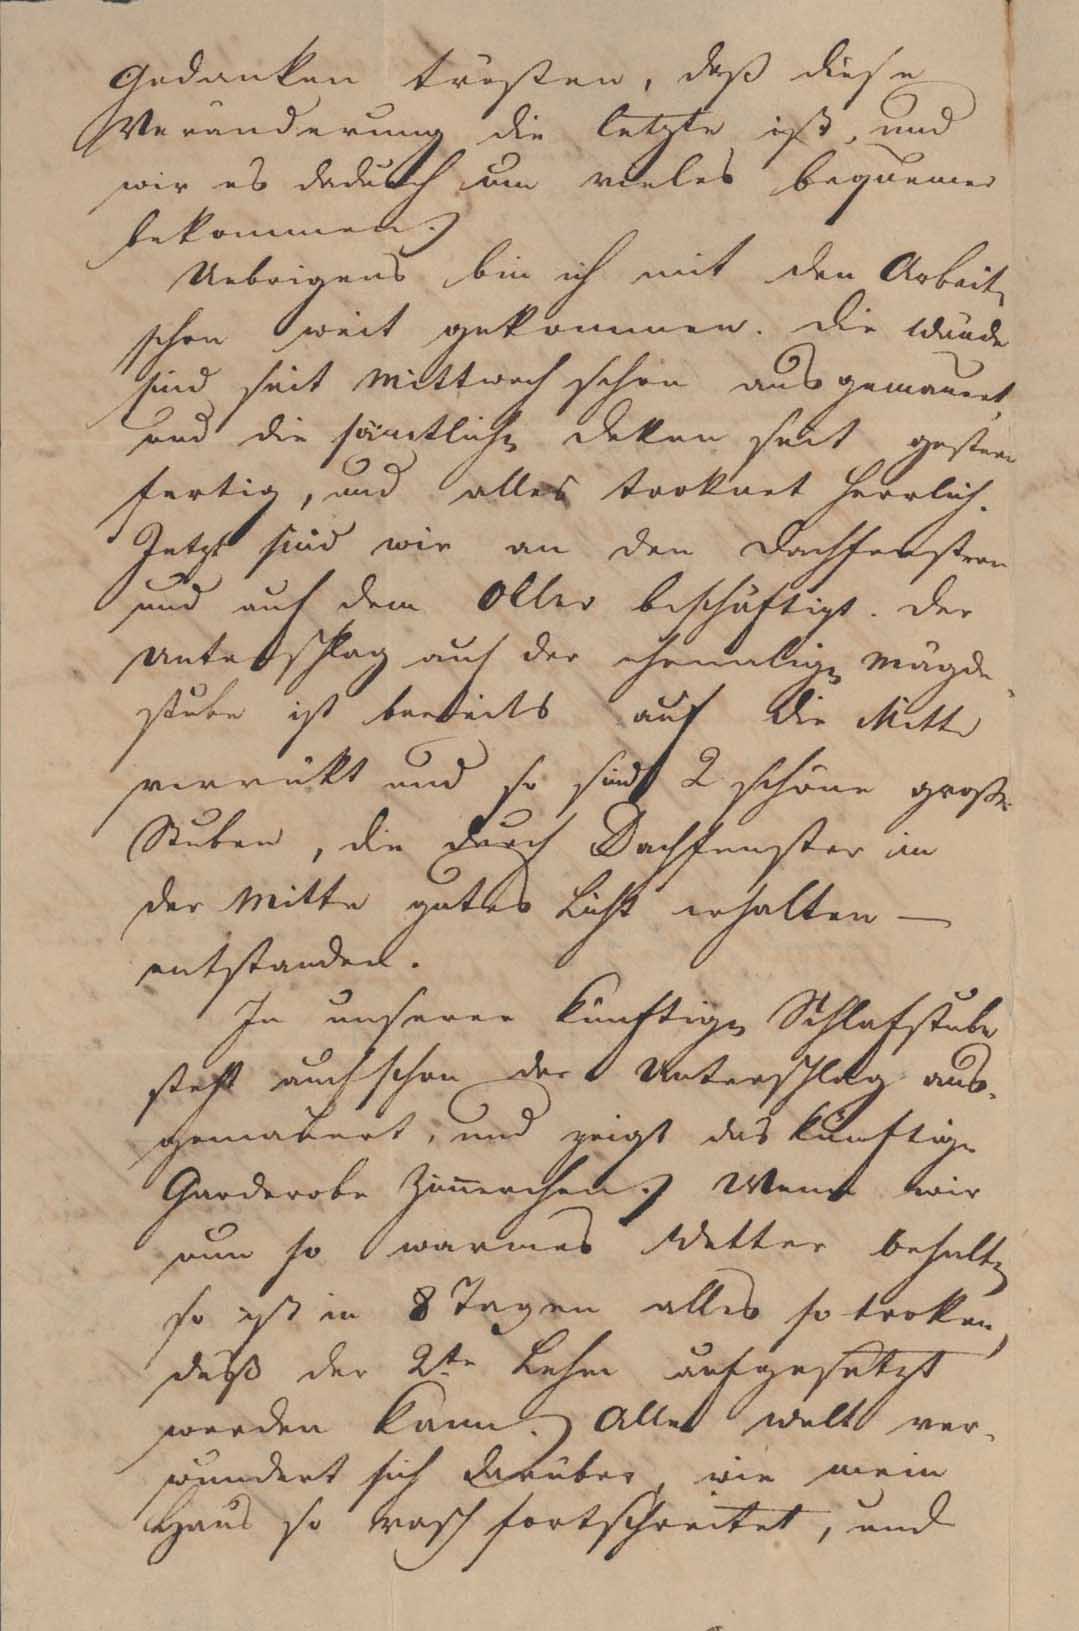 Gedanken trösten, daß diese
Veränderung die letzte ist, und
wir es dadurch um vieles bequemer
bekommen.
Uebrigens bin ich mit den Arbeiten
schon weit gekommen. Die Wände
sind seit Mittwoch schon ausgemauert,
und die sämtlichen Deken seit gestern
fertig, und alles troknet herrlich.
Jetzt sind wir an den Dachfenstern
und auf dem Oller beschäftigt. Der
Unterschlag auf der ehemaligen Mägde-
stube ist bereits auf die Mitte
verrükt und so sind 2 schöne große
Stuben, die durch Dachfenster in
der Mitte gutes Licht erhalten —
entstanden.
In unserer künftigen Schlafstube
steht auch schon der Unterschlag aus-
gemauert, und zeigt das künftige
Garderobe Zim̅erchen. Wenn wir
nun so warmes Wetter behalten
so ist in 8 Tagen alles so troken,
daß der 2te Lehm aufgesetzt
werden kann. Alle Welt ver-
wundert sich darüber, wie mein
Haus so rasch fortschreitet, und